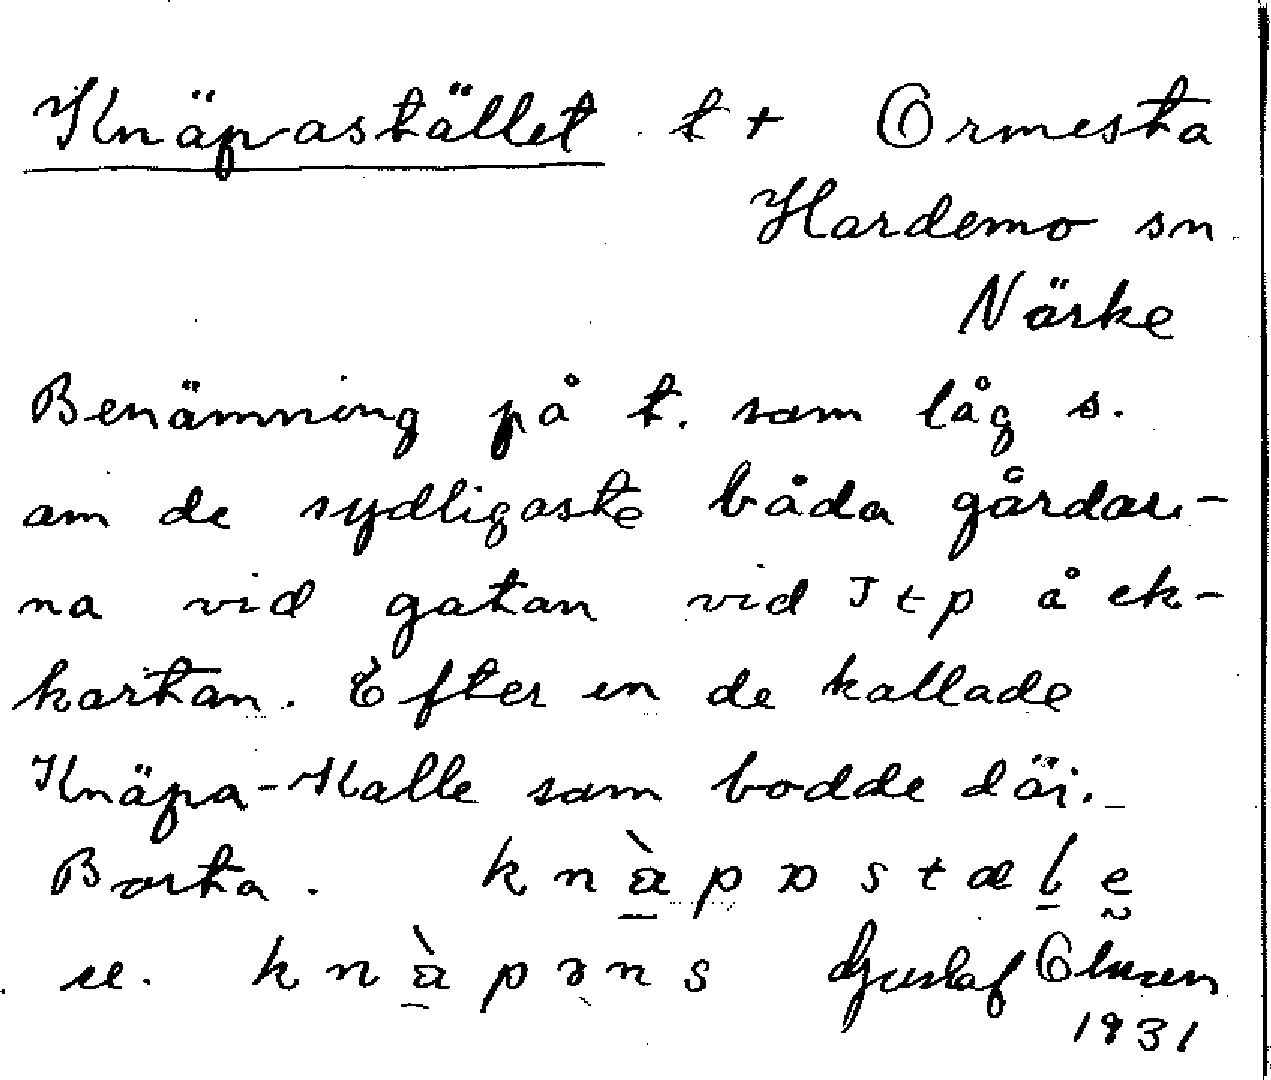 Knäpastället t + Ormesta
Hardemo sn
Närke
Benämning på t. som låg s.
om de sydligaste båda gårdar-
na vid gatan vid Itp å ek-
kartan. Efter en de kallade
Knäpa-Kalle som bodde där.
Borta. knæ̀pɒstæle
se. knæ̀pəns Gustaf Olsson
1931